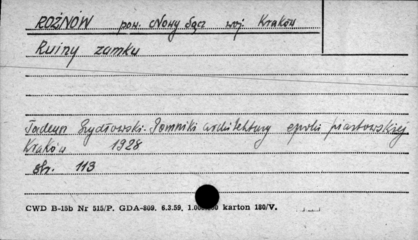 ROŻNÓW pow. Nowy Sącz woj. Kraków
Ruiny zamku
Tadeusz Szydłowski. Pomniki architektury epoki piastowskiej
Kraków 1928
str. 113
CWD B-15b Nr 515/P. GDA-809. 6.3.59, karton 180/V.